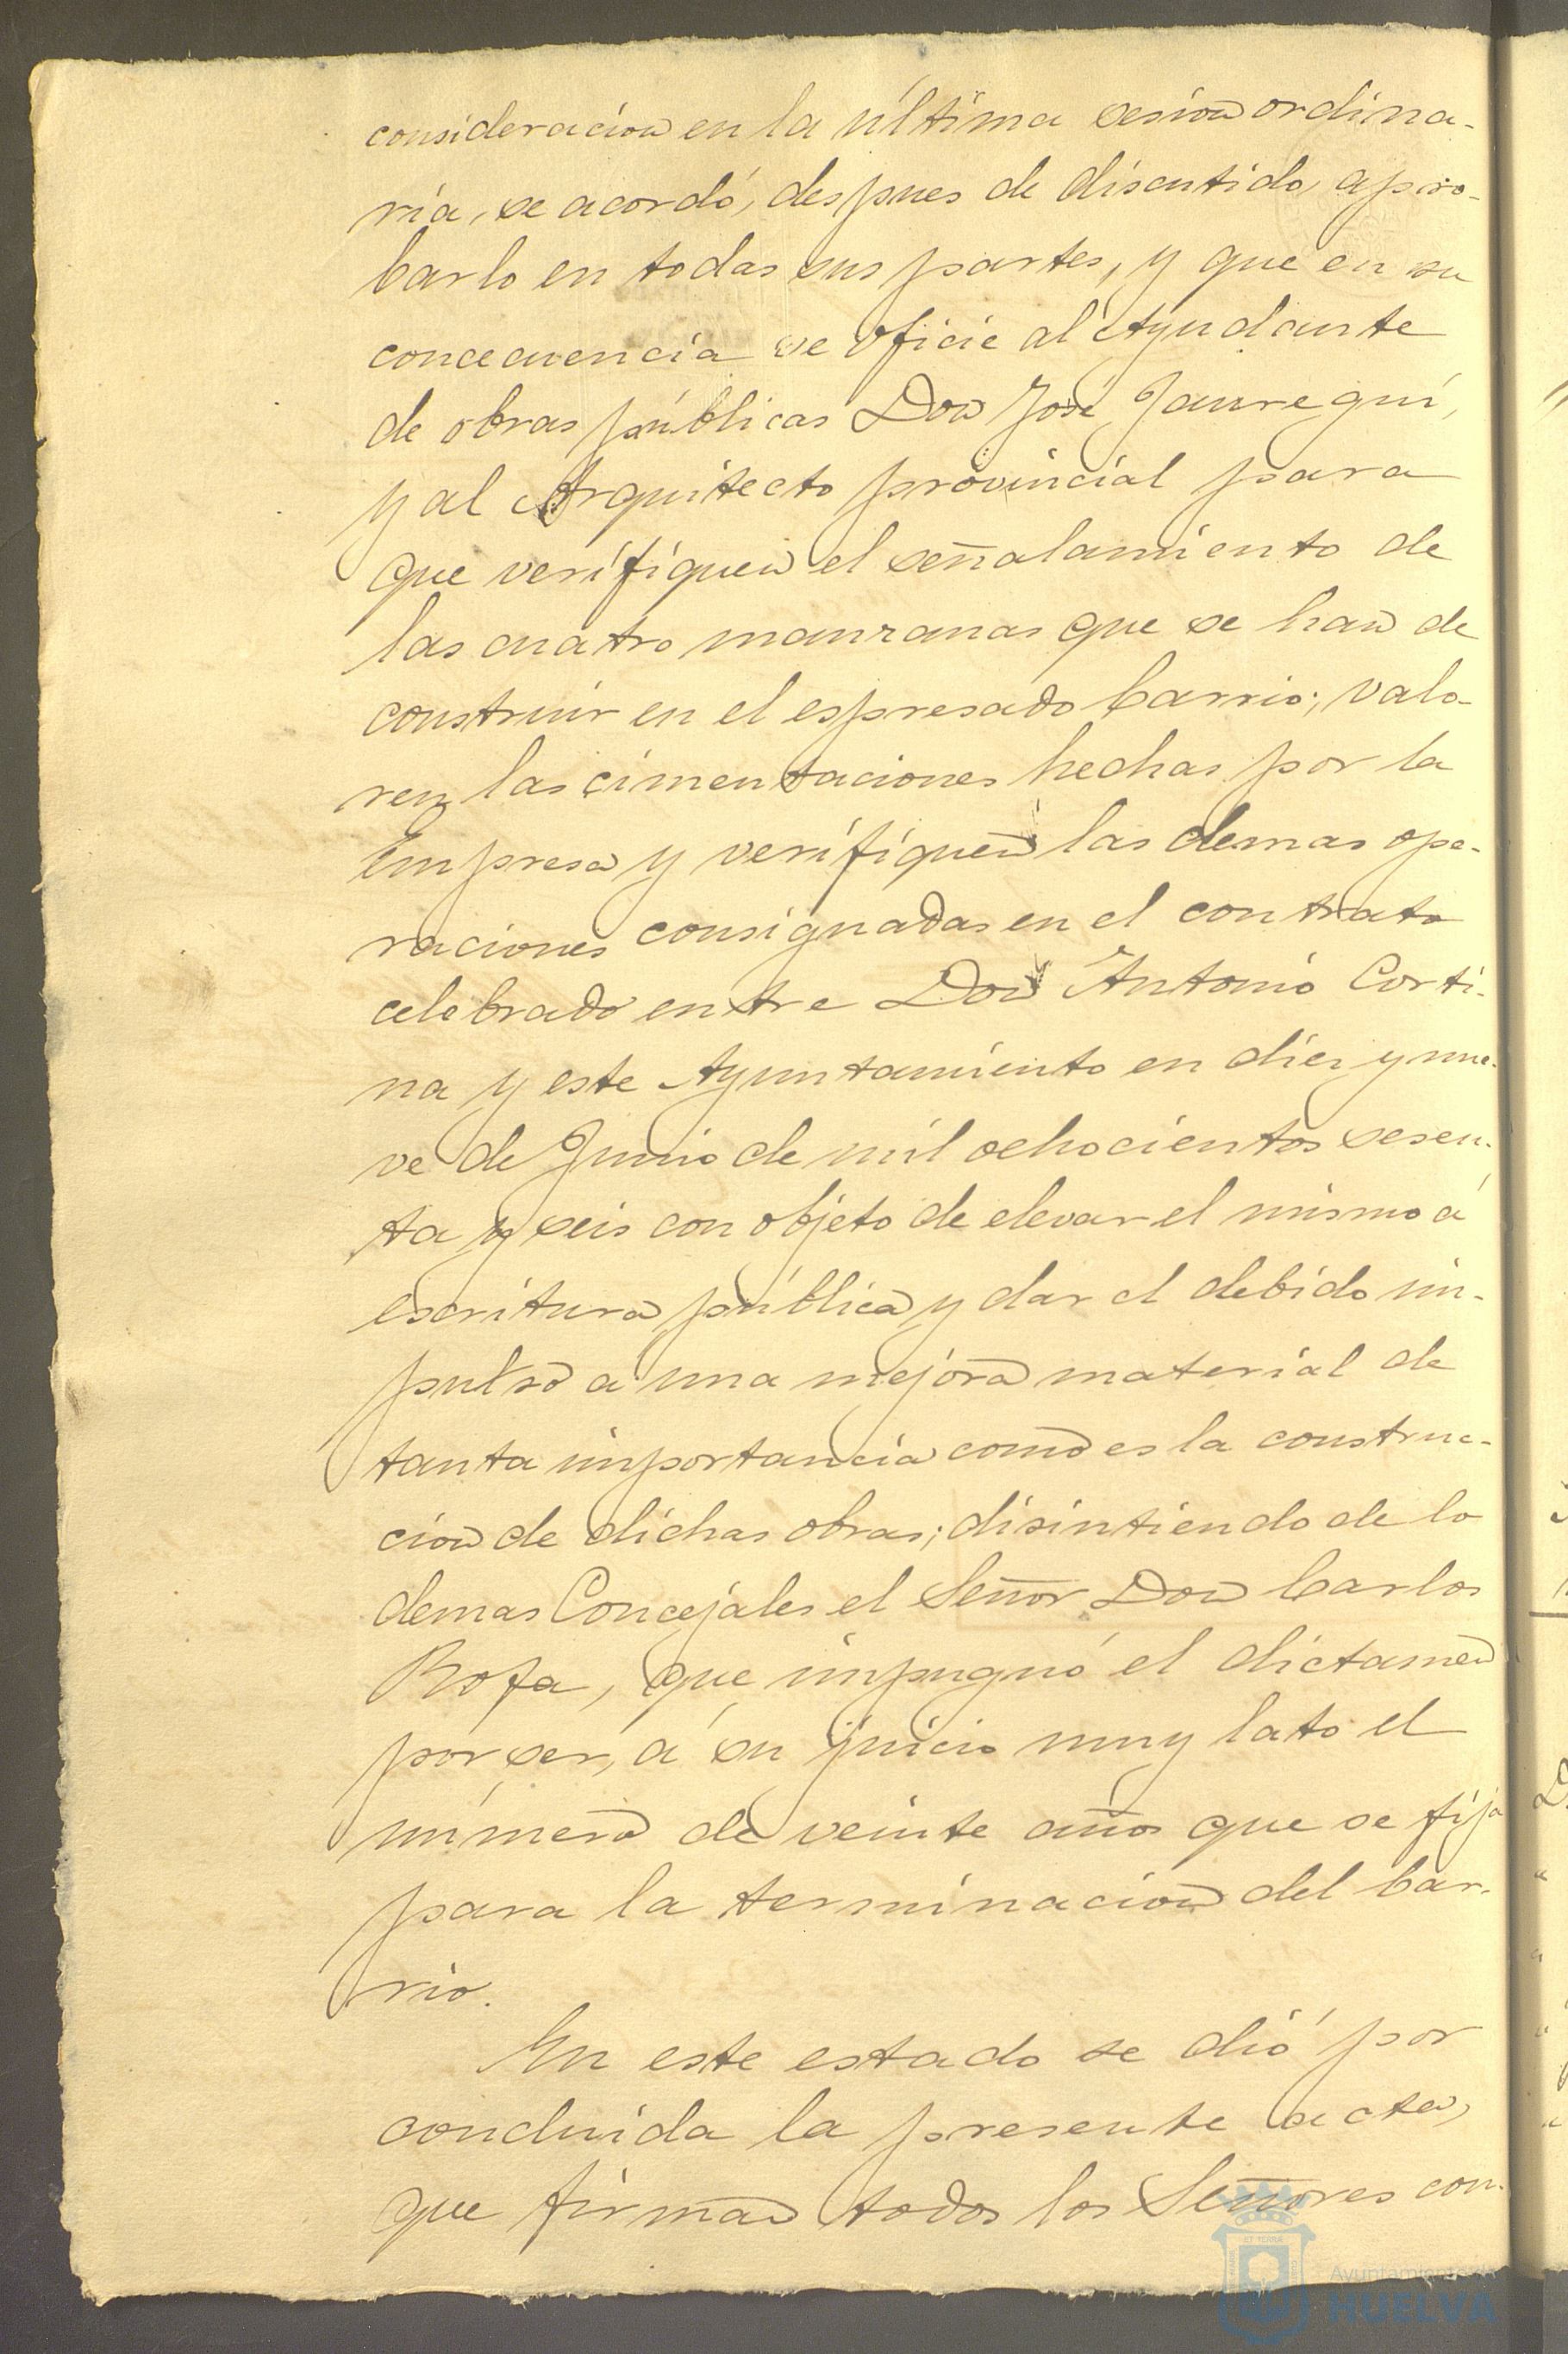 consideracion en la última sesion ordina-
ria, se acordó, despues de discutido, apro-
barlo en todas sus partes, y que en su
concecuencia se oficie al Ayudante
de obras públicas Don José Jauregui,
y al Arquitecto provincial para
que verifiquen el señalamiento de
las cuatro manzanas que se han de
construir en el espresado barrio; valo-
ren las cimentaciones hechas por la
Empresa y verifiquen las demas ope-
raciones consignadas en el contrato
celebrado entre Don Antonio Corti-
na y este Ayuntamiento en diez y nue-
ve de Junio de mil ochocientos sesen-
ta y seis con objeto de elevar el mismo á
escritura pública y dar el debido im-
pulso á una mejora material de
tanta importancia como es la construc-
cion de dichas obras; disintiendo de lo
demas Concejales el Señor Don Carlos
Rofa, que impugnó el dictamen
por ser, á su juicio muy lato el
número de veinte años que se fija
para la terminacion del bar-
rio.
En este estado se dió por
concluida la presente acta,
que firman todos los Señores con-
Ayuntamiento de
HUELVA